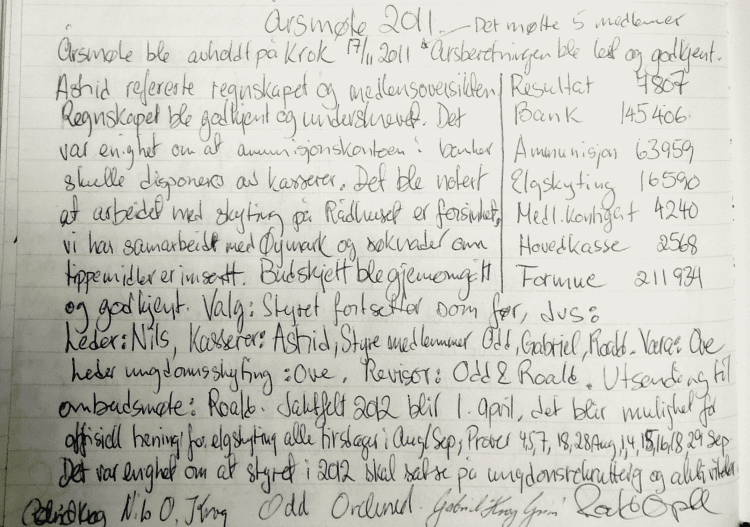 Årsmøte 2011. - Det møtte 5 medlemmer
Årsmøte ble avholdt på Krok 17/11 2011 & Årsberetningen ble lest og godkjent.
Astrid refererte regnskapet og medlemsoversikten Resultat 7807
Regnskapet ble godkjent og underskrevet. Det Bank 145406
var enighet om at ammunisjonskontoen i banken Ammunisjon 63959
skulle disponeres av kasserer. Det ble notert Elgskyting 16590
at arbeidet med skyting på Rådhuset er forsinket, Medl.kontigat 4240
vi har samarbeidt med Øymark og søknader om Hovedkasse 2568
tippemidler er innsendt. Budskjett ble gjennomgått Formue 211934
og godkjent. Valg: Styret fortsetter som før, dvs:
Leder: Nils, Kasserer: Astrid, Styremedlemmer Odd, Gabriel, Roald. Vara: Ove
Leder ungdomsskyting: Ove. Revisor: Odd & Roald. Utsending til
ombudsmøte: Roald. 2012 blir 1. april, det blir mulighet for
offisiell trening for elgskyting alle tirsdager i Aug/Sep, Prøver 4,5,7, 18, 28 Aug, 1,4 29 Sep
Det var enghet om at styret i 2012 skal satse på ungdomsrekruttering og
Nils O. Krog Odd Gabriel Krog